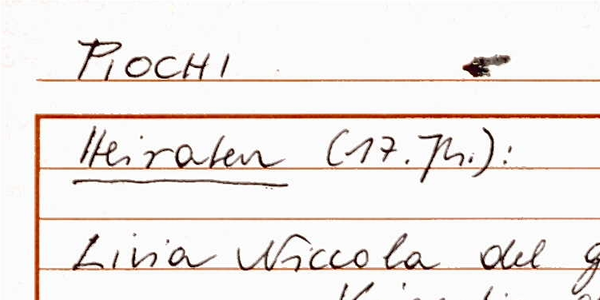 PIOCHI
Heiraten (17. Jh.):
Livia Niccola del